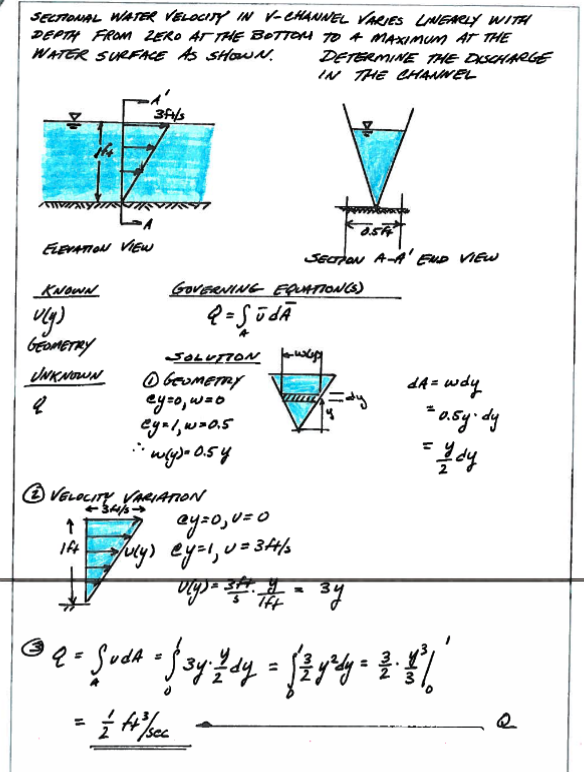 SECTIONAL WATER VELOCITY IN V-CHANNEL VARIES LINEARLY WITH
DEPTH FROM ZERO AT THE BOTTOM TO A MAXIMUM AT THE
WATER SURFACE AS SHOWN. DETERMINE THE DISCHARGE
IN THE CHANNEL
A'
3ft/s
1ft
A
0.5ft
ELEVATION VIEW
SECTION A-A' END VIEW
KNOWN
GOVERNING EQUATION(S)
V(y)
Q = ∫_A v̄ dĀ
GEOMETRY
SOLUTION
w(y)
UNKNOWN
① GEOMETRY
dA = wdy
Q
@y=0, w=0
dy
y
= 0.5y · dy
@y=1, w=0.5
∴ w(y)=0.5y
= y/2 dy
② VELOCITY VARIATION
3ft/s
@y=0, v=0
1ft
v(y)
@y=1, v=3ft/s
V(y) = 3ft/s · y/1ft = 3y
③ Q = ∫_A v dA = ∫_0^1 3y · y/2 dy = ∫_0^1 3/2 y² dy = 3/2 · y³/3 |_0^1
= 1/2 ft³/sec Q